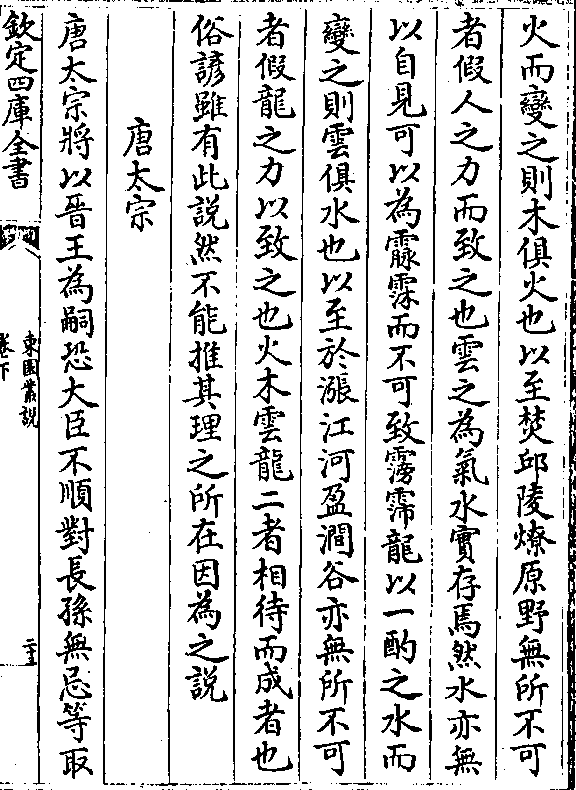 火而變之則木俱火也以至焚邱陵燎原野無所不可
者假人之力而致之也雲之為氣水實存焉然水亦無
以自見可以為霢霂而不可致霶霈龍以一酌之水而
變之則雲俱水也以至於漲江河盈澗谷亦無所不可
者假龍之力以致之也火木雲龍二者相待而成者也
俗諺雖有此說然不能推其理之所在因為之說
唐太宗
唐太宗將以晉王為嗣恐大臣不順對長孫無忌等取
欽定四庫全書
東園叢說
卷下